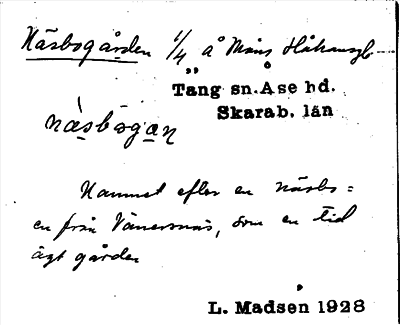 Näsbogården 1/4 å Måns Håkansgb
Täng sn. Åse hd.
Skarab. län
næ̀sbogan
Namnet efter en näsbo=
en från Vänersnäs, som en tid
ägt gården
L. Madsen 1928